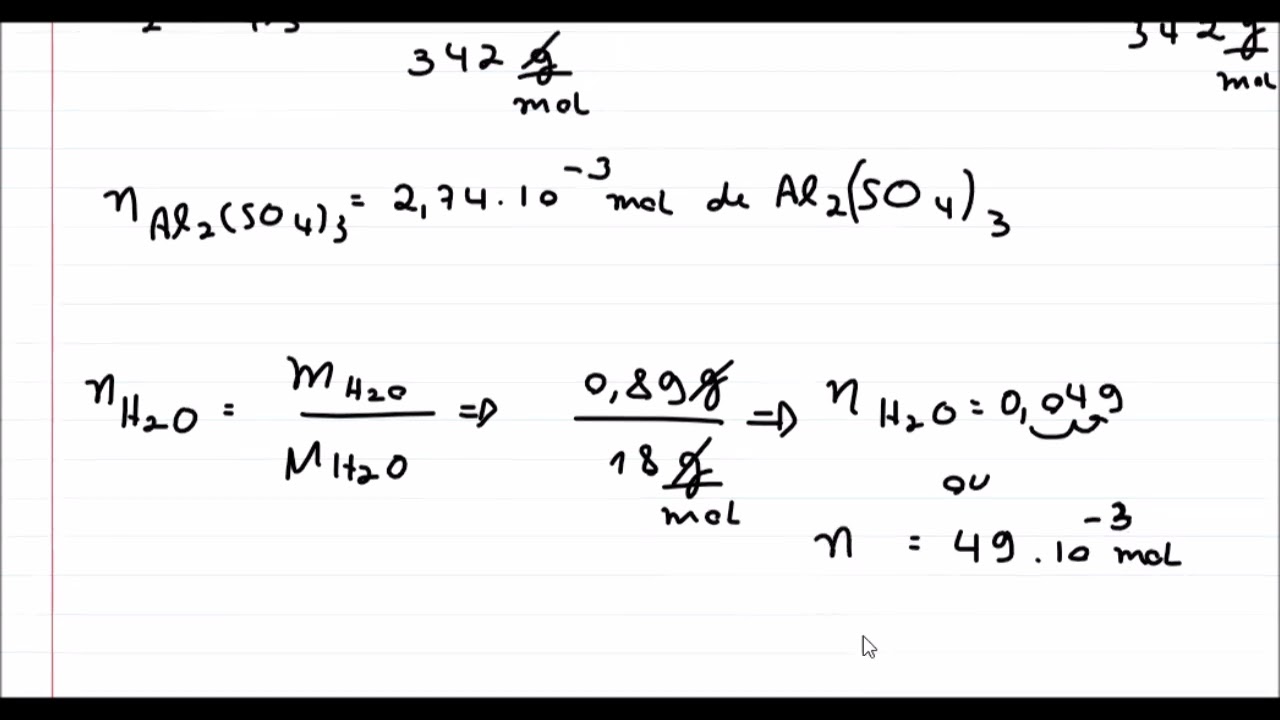 342 g/mol 342 g/mol
n Al₂(SO₄)₃ = 2,74.10⁻³ mol de Al₂(SO₄)₃
n H₂O = m H₂O / M H₂O ⇒ 0,89g / 18 g/mol ⇒ n H₂O = 0,049
ou
n = 49.10⁻³ mol